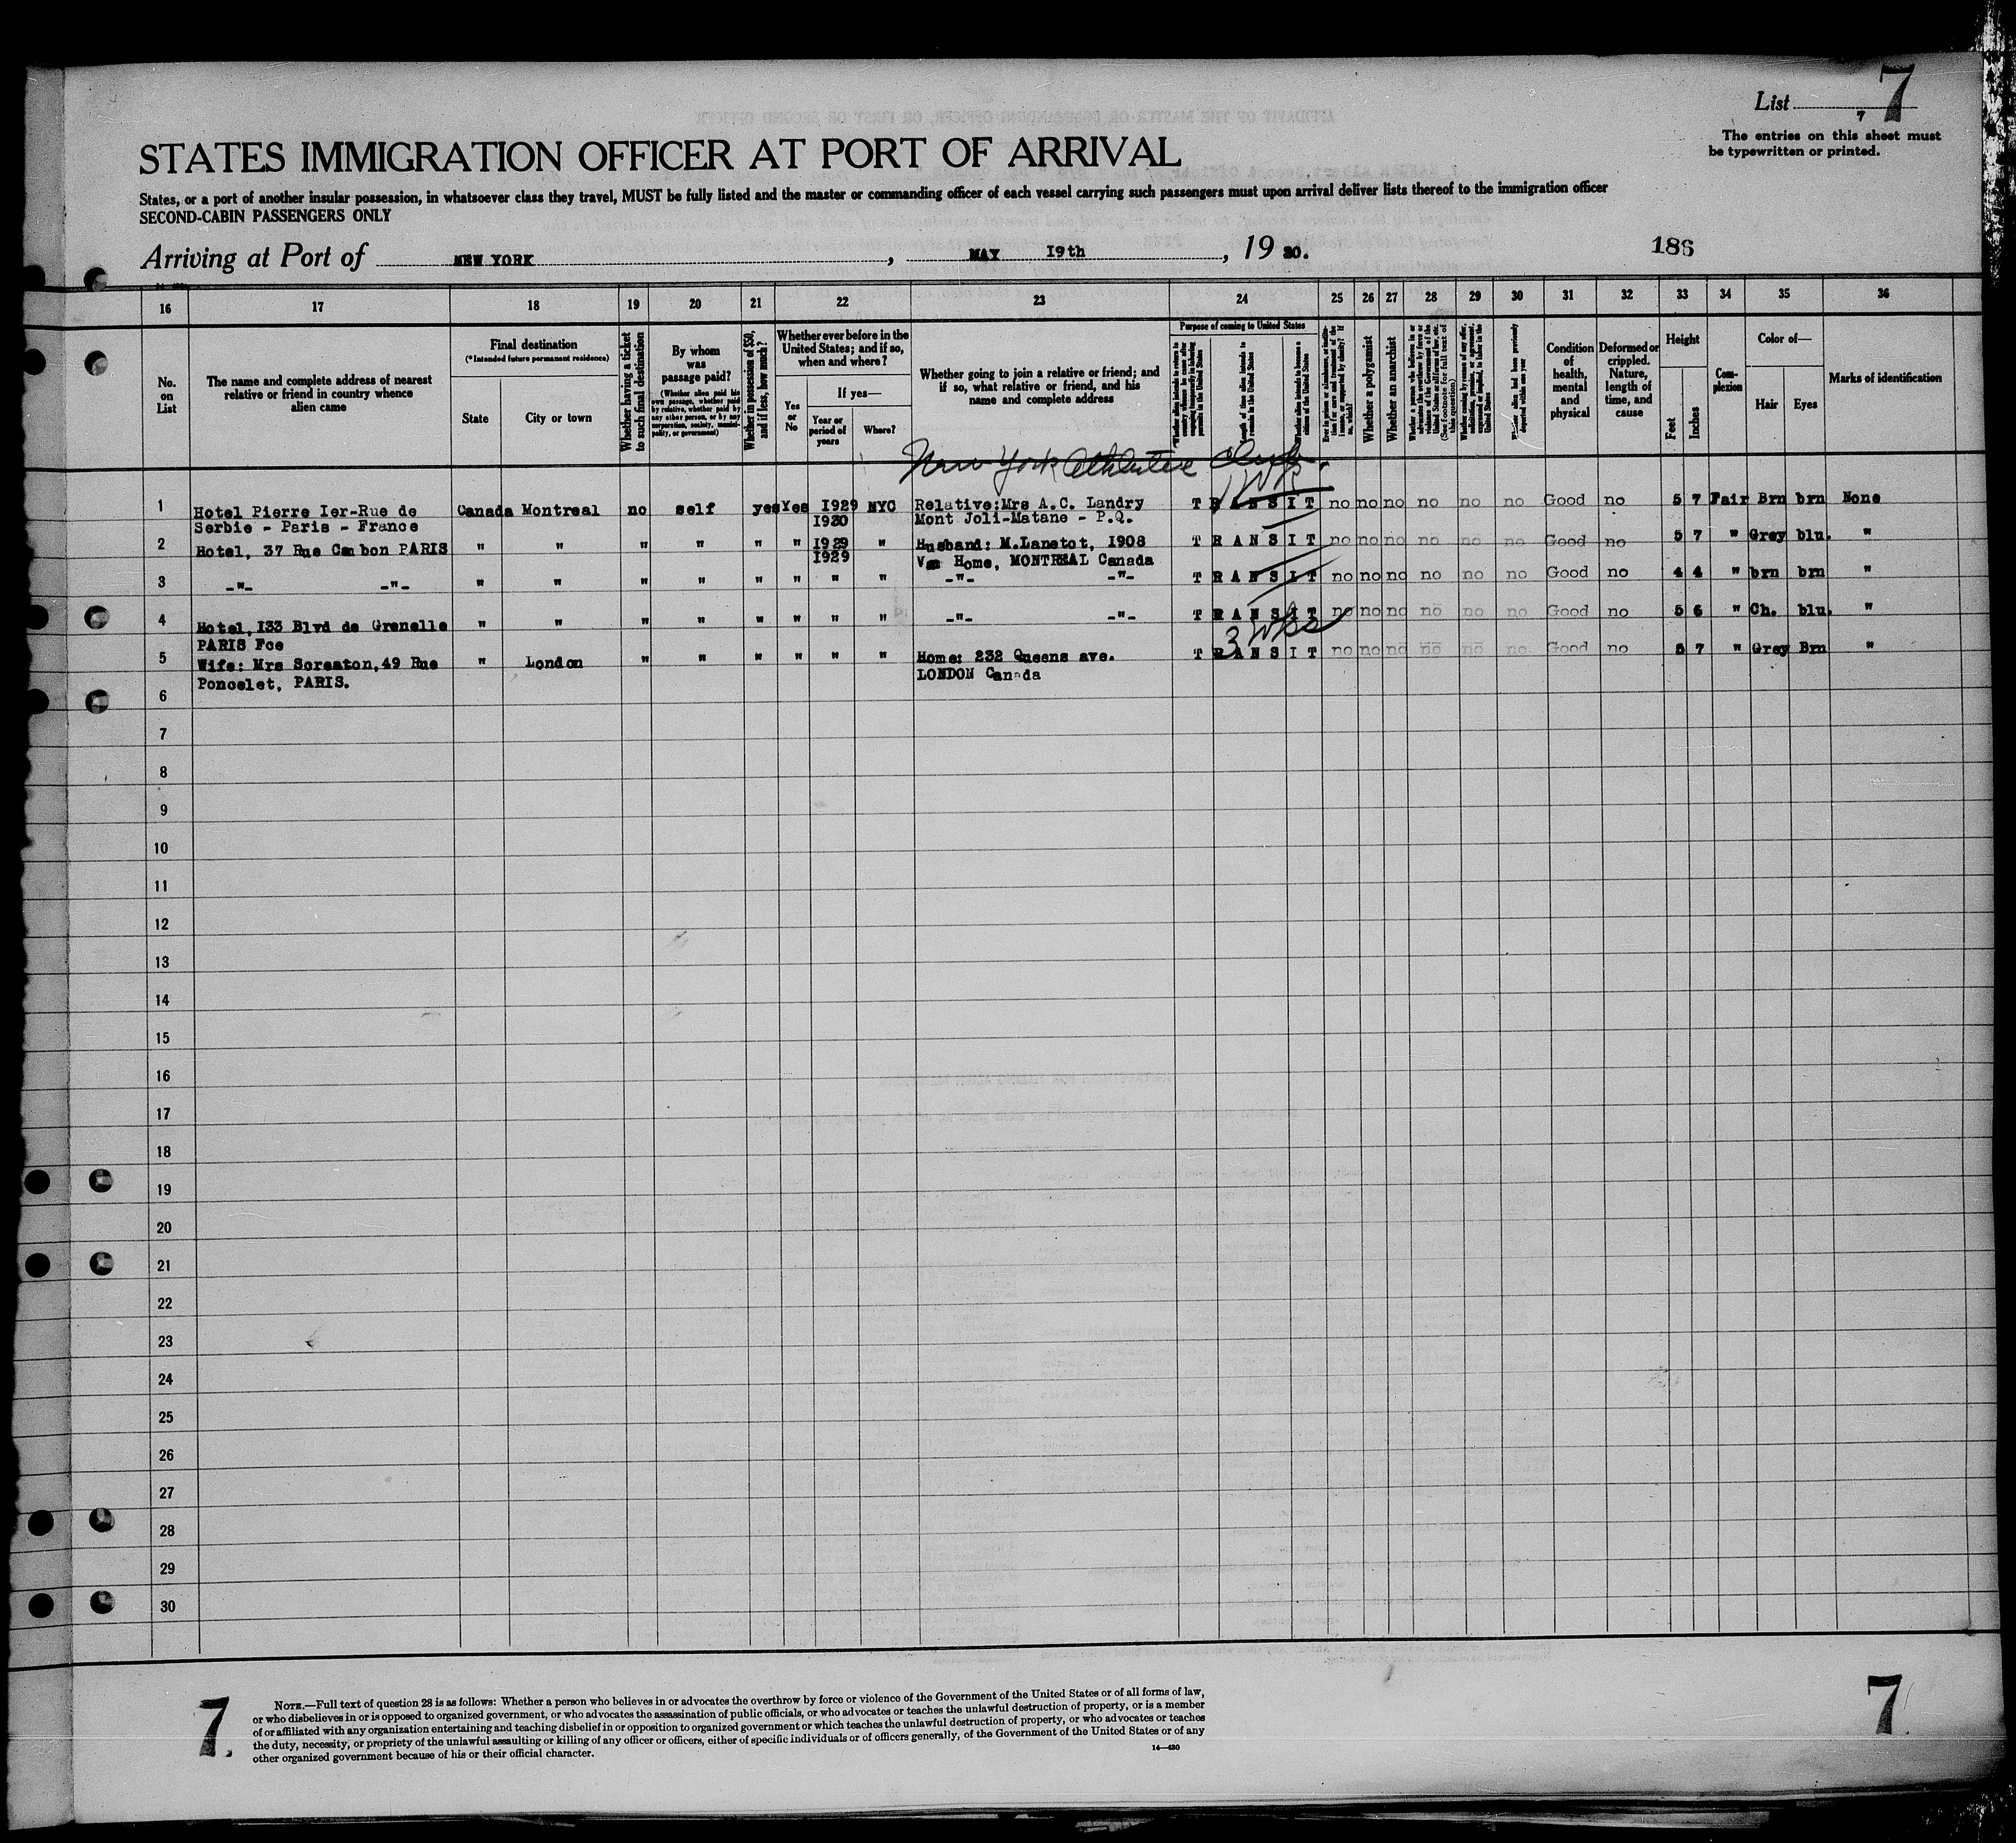 List 7
7
The entries on this sheet must
be typewritten or printed.
STATES IMMIGRATION OFFICER AT PORT OF ARRIVAL
States, or a port of another insular possession, in whatsoever class they travel, MUST be fully listed and the master or commanding officer of each vessel carrying such passengers must upon arrival deliver lists thereof to the immigration officer
SECOND-CABIN PASSENGERS ONLY
Arriving at Port of NEW YORK, MAY 19th, 19 30.
186
16 17 18 19 20 21 22 23 24 25 26 27 28 29 30 31 32 33 34 35 36
No. on List
The name and complete address of nearest
relative or friend in country whence
alien came
Final destination
(*Intended future permanent residence)
State
City or town
Whether having a ticket
to such final destination
By whom
was
passage paid?
(Whether alien paid his
own passage, whether paid
by relative, whether paid by
any other person, or by any
corporation, society, munici-
pality, or government)
Whether in possession of $50,
and if less, how much?
Whether ever before in the
United States; and if so,
when and where?
Yes
or
No
If yes—
Year or
period of
years
Where?
Whether going to join a relative or friend; and
if so, what relative or friend, and his
name and complete address
Purpose of coming to United States
Length of time alien intends to
remain in the United States
Whether alien intends to become a
citizen of the United States
Whether a polygamist
Whether an anarchist
Condition
of
health,
mental
and
physical
Deformed or
crippled.
Nature,
length of
time, and
cause
Height
Feet
Inches
Com-
plexion
Color of—
Hair
Eyes
Marks of identification
New York Athletic Club.
1 WK
1 Hotel Pierre Ier-Rue de Canada Montreal no self yes Yes 1929 NYC Relative:Mrs A.C. Landry TRANSIT no no no no no no Good no 5 7 Fair Brn brn None
Serbie - Paris - France 1930 Mont Joli-Matane - P.Q.
2 Hotel, 37 Rue Cambon PARIS " " " " " " 1929 " Husband: M.Lanctot, 1908 TRANSIT no no no no no no Good no 5 7 " Grey blu. "
1929 Van Home, MONTREAL Canada
3 -"- -"- " " " " " " " " -"- -"- TRANSIT no no no no no no Good no 4 4 " brn brn "
4 Hotel, 133 Blvd de Grenelle " " " " " " " " -"- -"- TRANSIT no no no no no no Good no 5 6 " Ch. blu. "
PARIS Fce
3 Wks
5 Wife: Mrs Screaton,49 Rue " London " " " " " " Home: 232 Queens ave. TRANSIT no no no no no no Good no 5 7 " Grey Brn "
Poncelet, PARIS. LONDON Canada
6
7
8
9
10
11
12
13
14
15
16
17
18
19
20
21
22
23
24
25
26
27
28
29
30
7.
NOTE.—Full text of question 28 is as follows: Whether a person who believes in or advocates the overthrow by force or violence of the Government of the United States or of all forms of law,
or who disbelieves in or is opposed to organized government, or who advocates the assassination of public officials, or who advocates or teaches the unlawful destruction of property, or is a member
of or affiliated with any organization entertaining and teaching disbelief in or opposition to organized government or which teaches the unlawful destruction of property, or who advocates or teaches
the duty, necessity, or propriety of the unlawful assaulting or killing of any officer or officers, either of specific individuals or of officers generally, of the Government of the United States or of any
other organized government because of his or their official character.
14—430
7